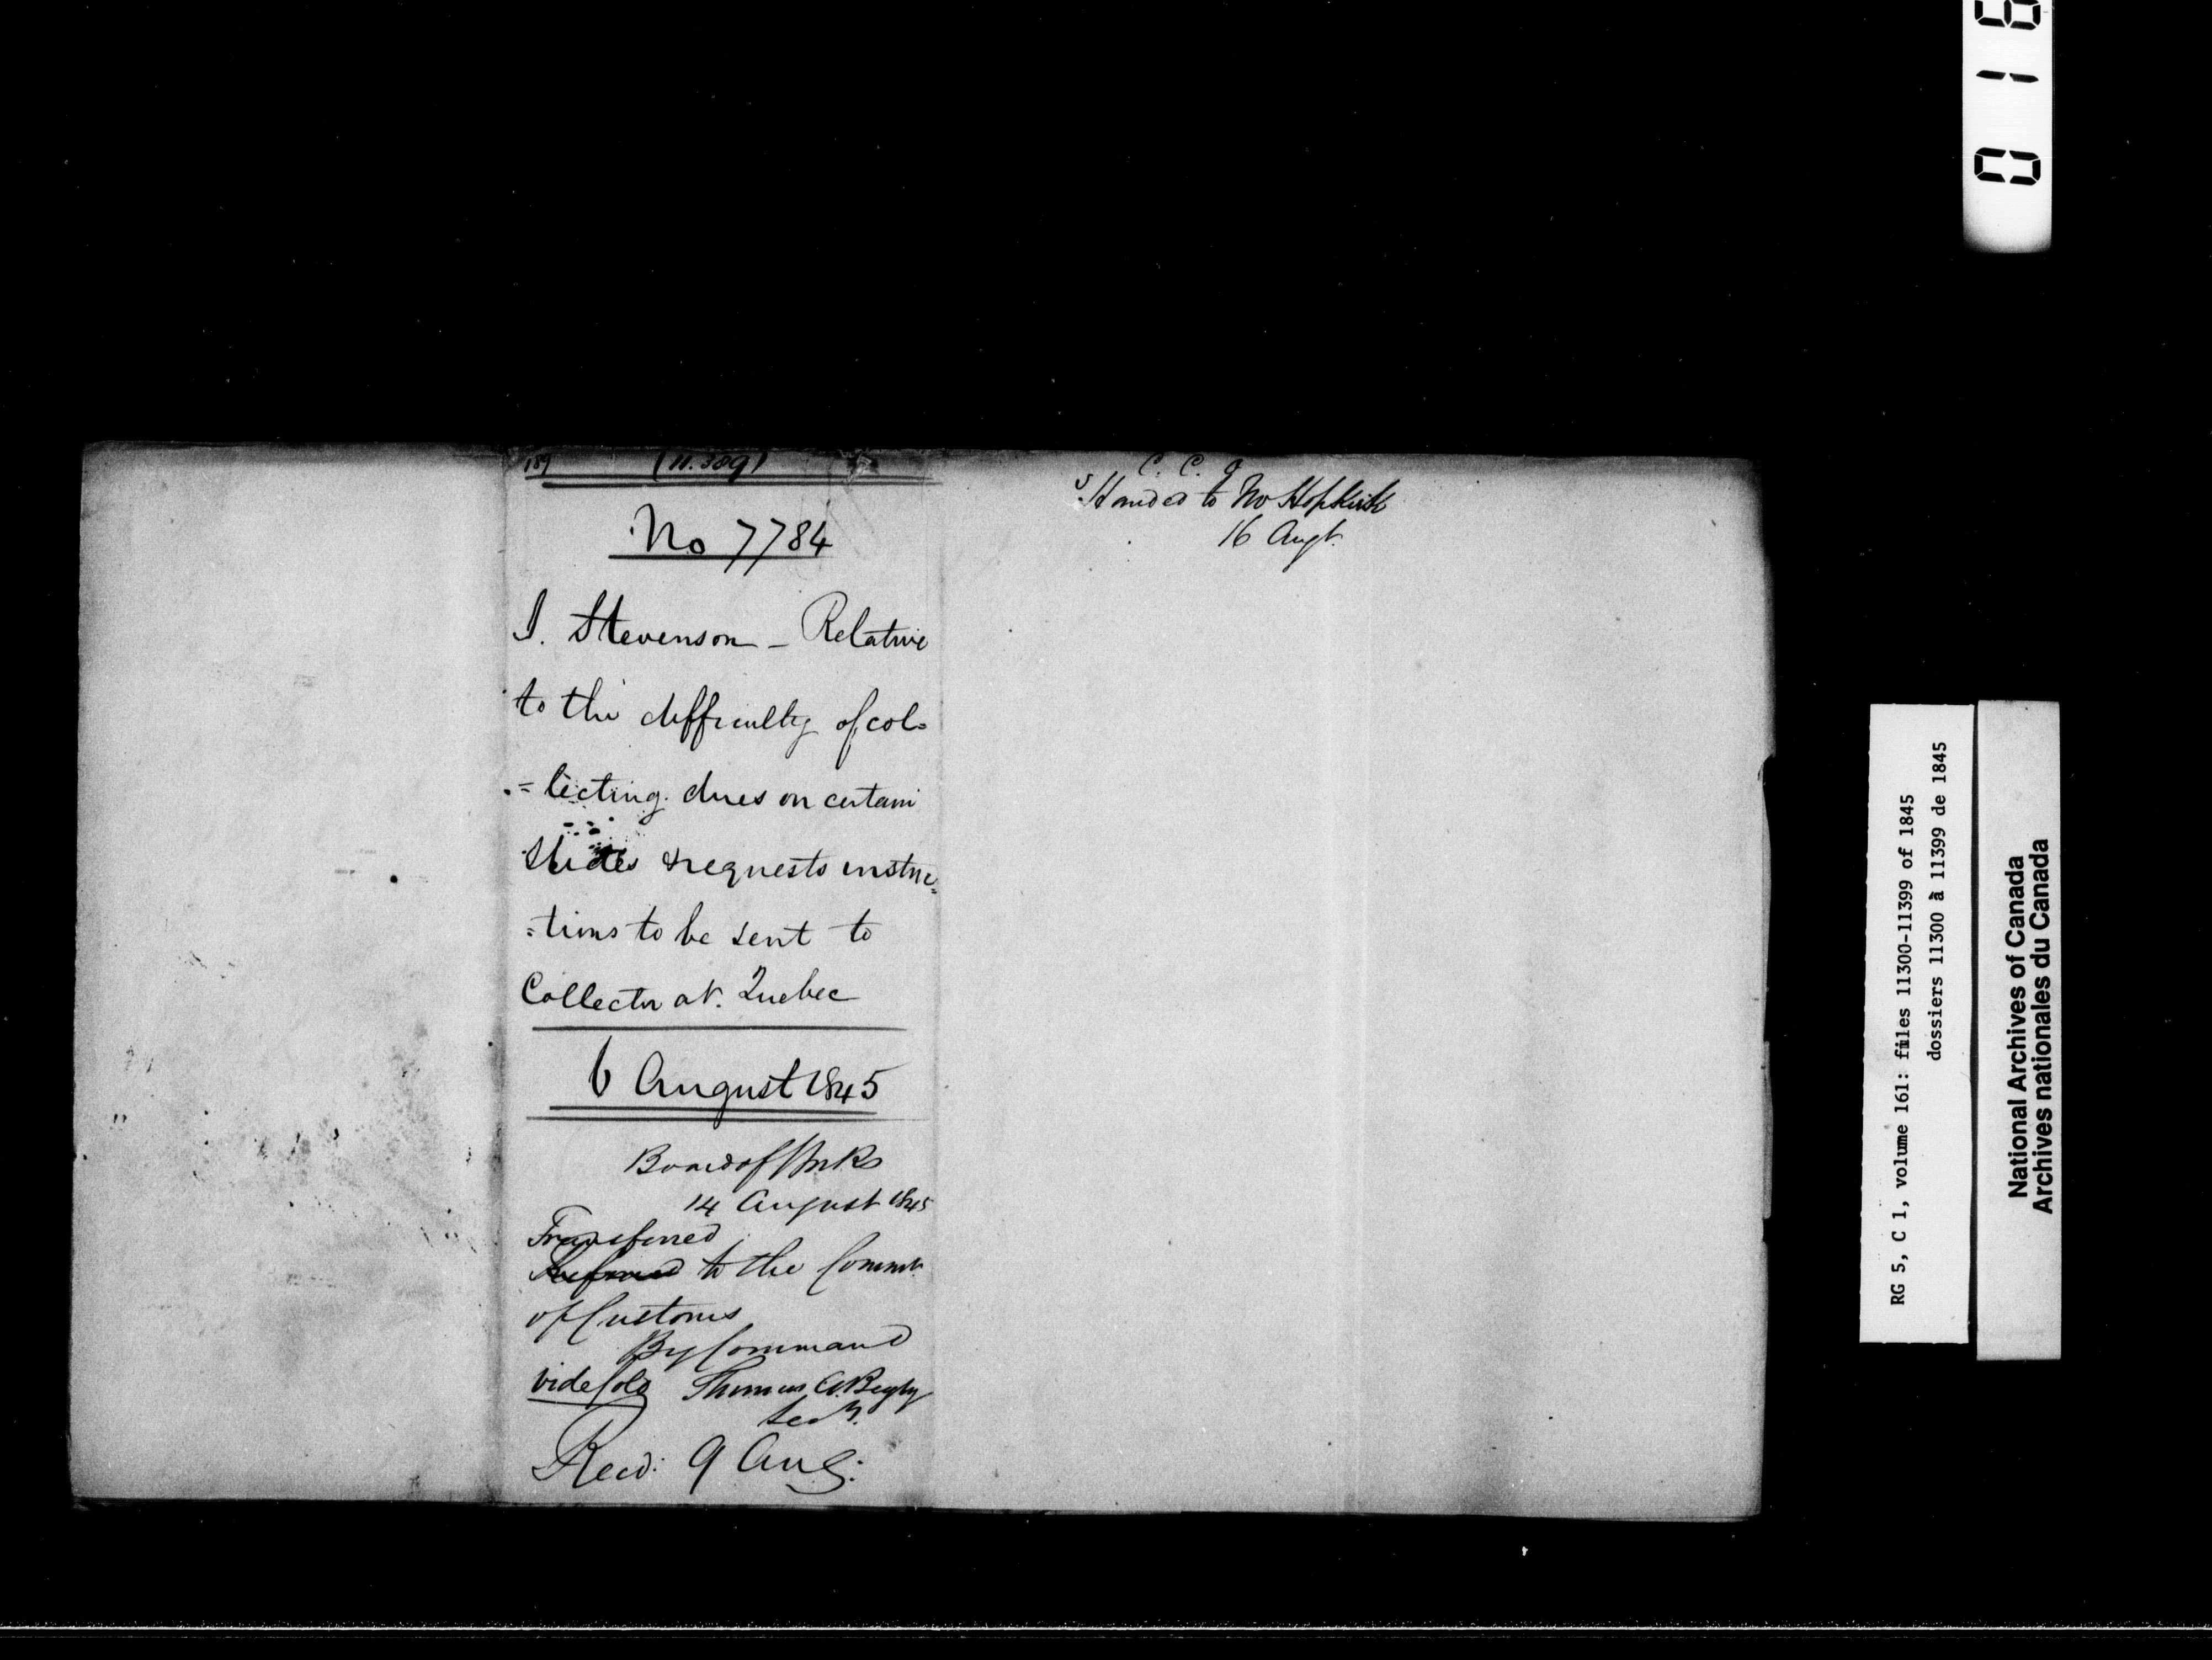 189 (11.389)
No 7784
J. Stevenson - Relative
to the difficulty of col=
=lecting dues on certain
Slides & requests instruc=
=tions to be sent to
Collector at Quebec
6 August 1845
Board of Works
14 August 1845
Transferred
Referred to the Commr
of Customs
By Command
vide fold Thomas A. Begly
Secy.
Recd: 9 Aug:
C. C.
Handed to Mr Hopkirk
16 Augt.
0 1 6
RG 5, C 1, volume 161: files 11300-11399 of 1845
dossiers 11300 à 11399 de 1845
National Archives of Canada
Archives nationales du Canada